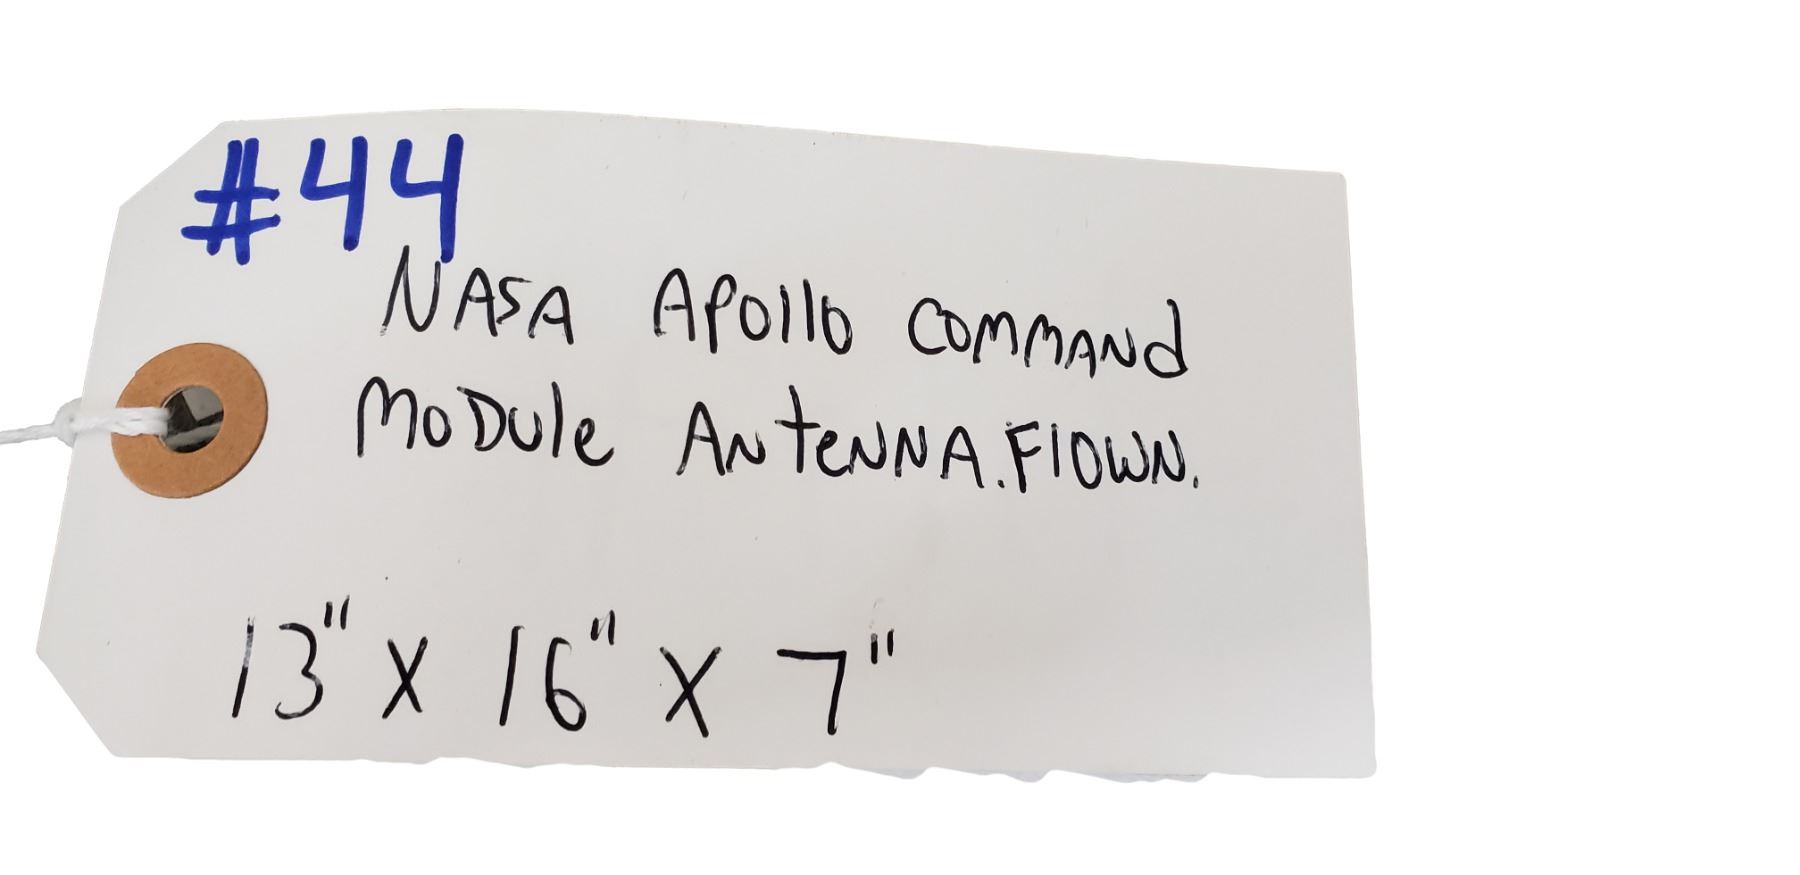 #44
NASA Apollo Command
Module Antenna. Flown.
13" x 16" x 7"